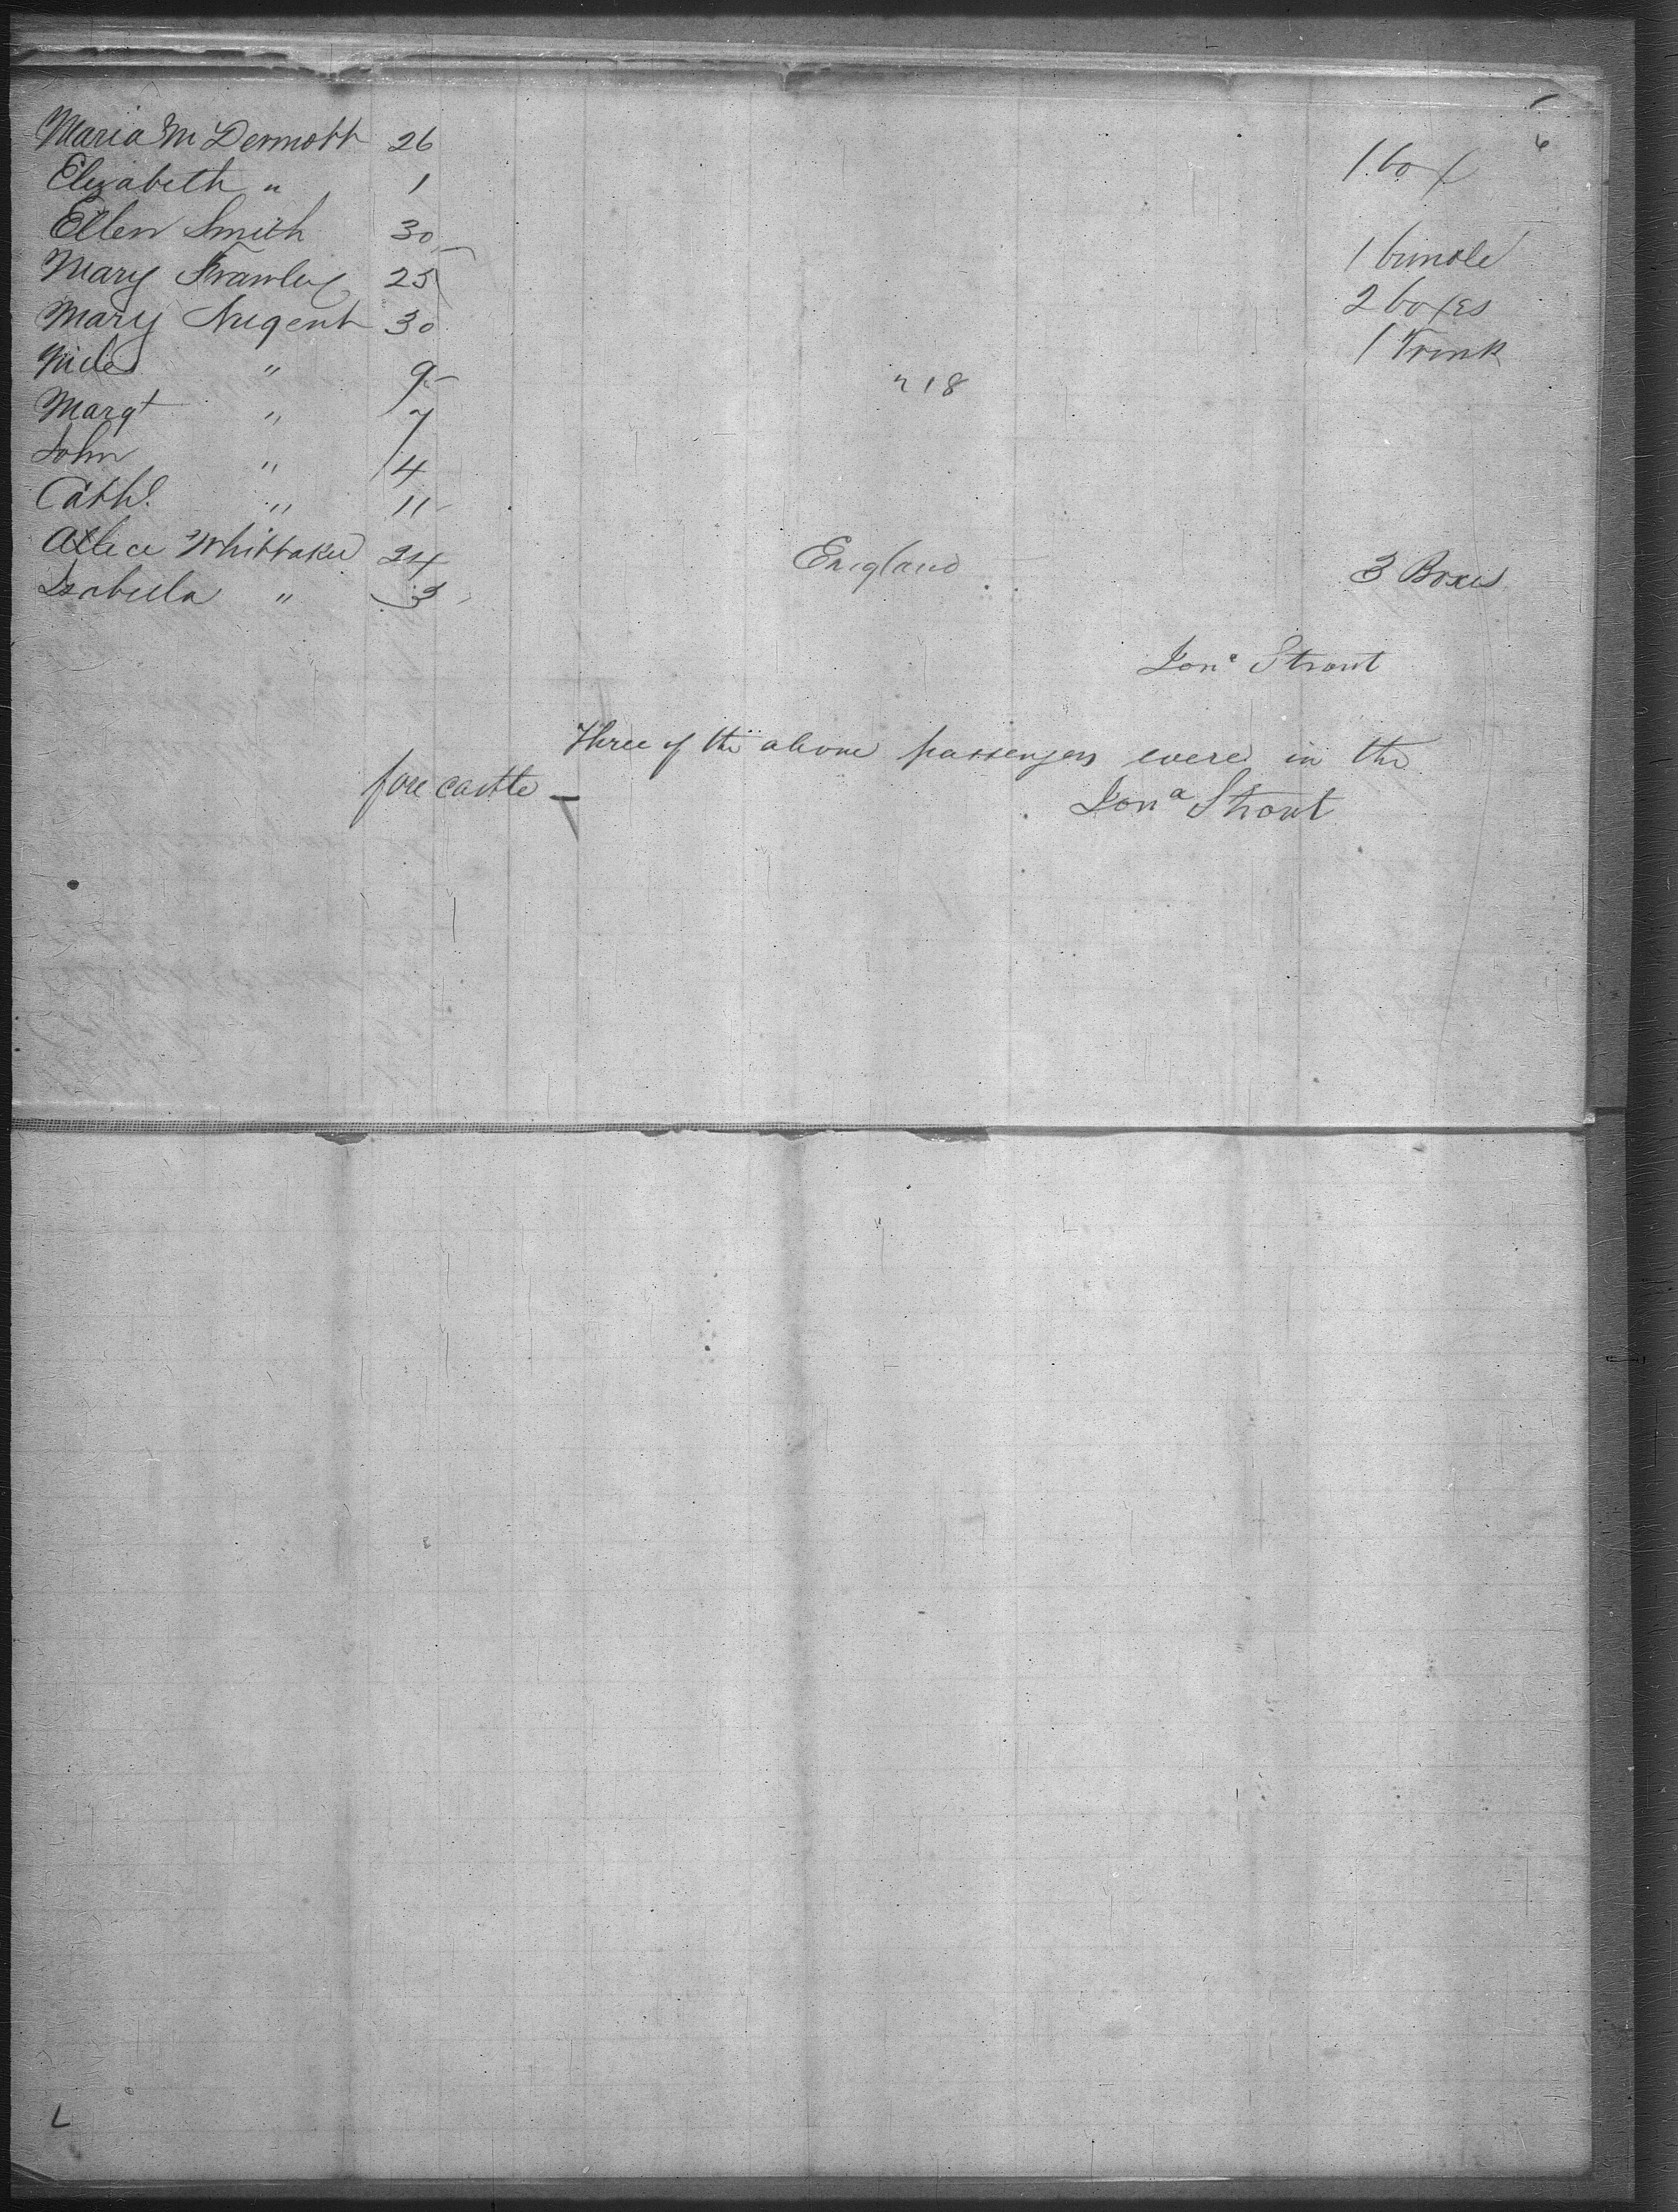 6
Maria McDermott 26 1 box
Elizabeth " 1
Ellen Smith 30 1 bundle
Mary Frawley 25 2 boxes
Mary Nugent 30 1 Trunk
" 9 18
Margt " 7
John " 4
Cath. " 11
Allice Whittaker 24 England 3 Boxes
Isabella " 3
Jona Strout
Three of the above passengers were in the
fore castle —
Jona Strout
L